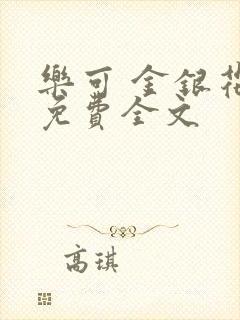 樂可 金銀花
免費全文
高琪